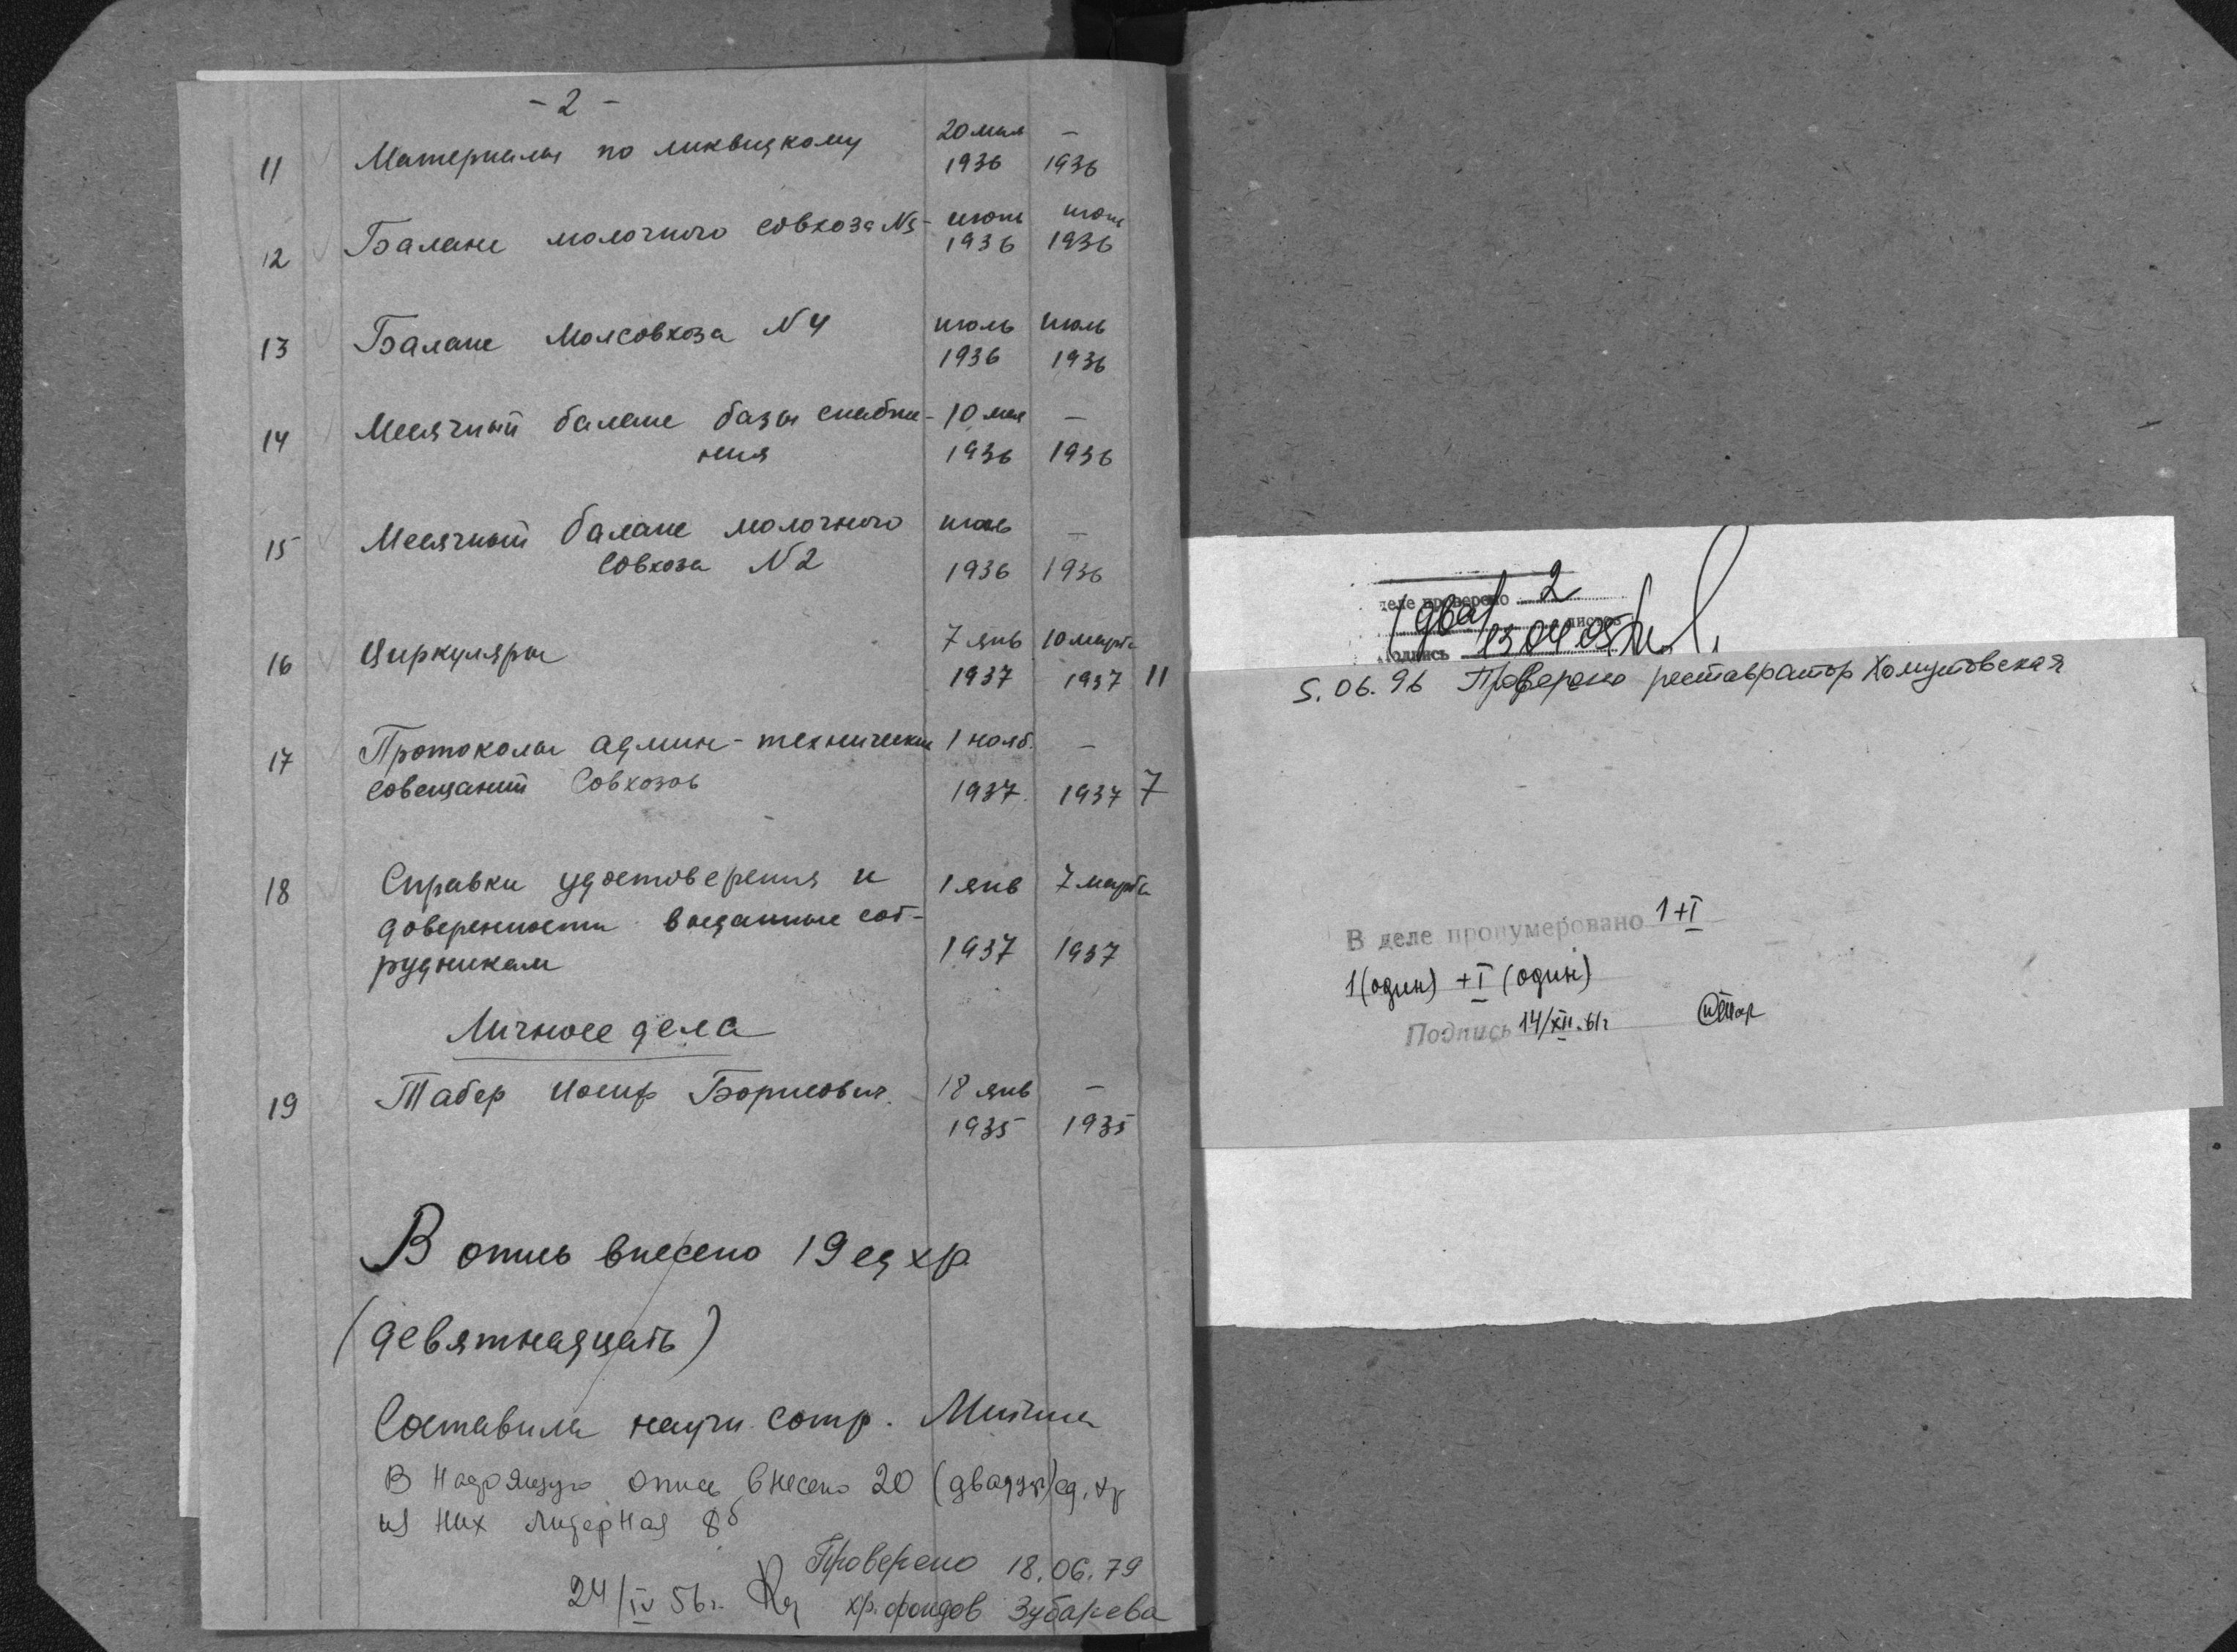 - 2 -
11 Материалы по ликвидкому 20 мая 1936 - 1936
12 Баланс молочного совхоза №5 - июнь 1936 июнь 1936
13 Баланс Молсовхоза N 4 июль 1936 июль 1936
14 Месячный баланс базы снабже- 10 мая 1936 - 1936
ния
15 Месячный баланс молочного июль 1936 - 1936
совхоза N 2
16 Циркуляры 7 янв 1937 10 марта 1937 11
17 Протоколы админ-технических 1 нояб. 1937 - 1937 7
совещаний Совхозов
18 Справки удостоверения и 1 янв 1937 7 марта 1937
доверенности выданные сот-
рудникам
Личное дела
19 Табер Иосиф Борисович. 18 янв 1935 - 1935
В опись внесено 19 ед хр.
(девятнадцать)
Составила научн. сотр.
В настоящую опись внесено 20 (двадцать) ед. хр
из них литерная 8б
24/IV 56 г.
Проверено 18.06.79
хр. фондов Зубарева
деле проверено 2
(два) листов
подпись 13 04 05
5.06.96 Проверено реставратор Хомутовская
В деле пронумеровано 1+I
1 (один) + I (один)
Подпись 14/XII.61г